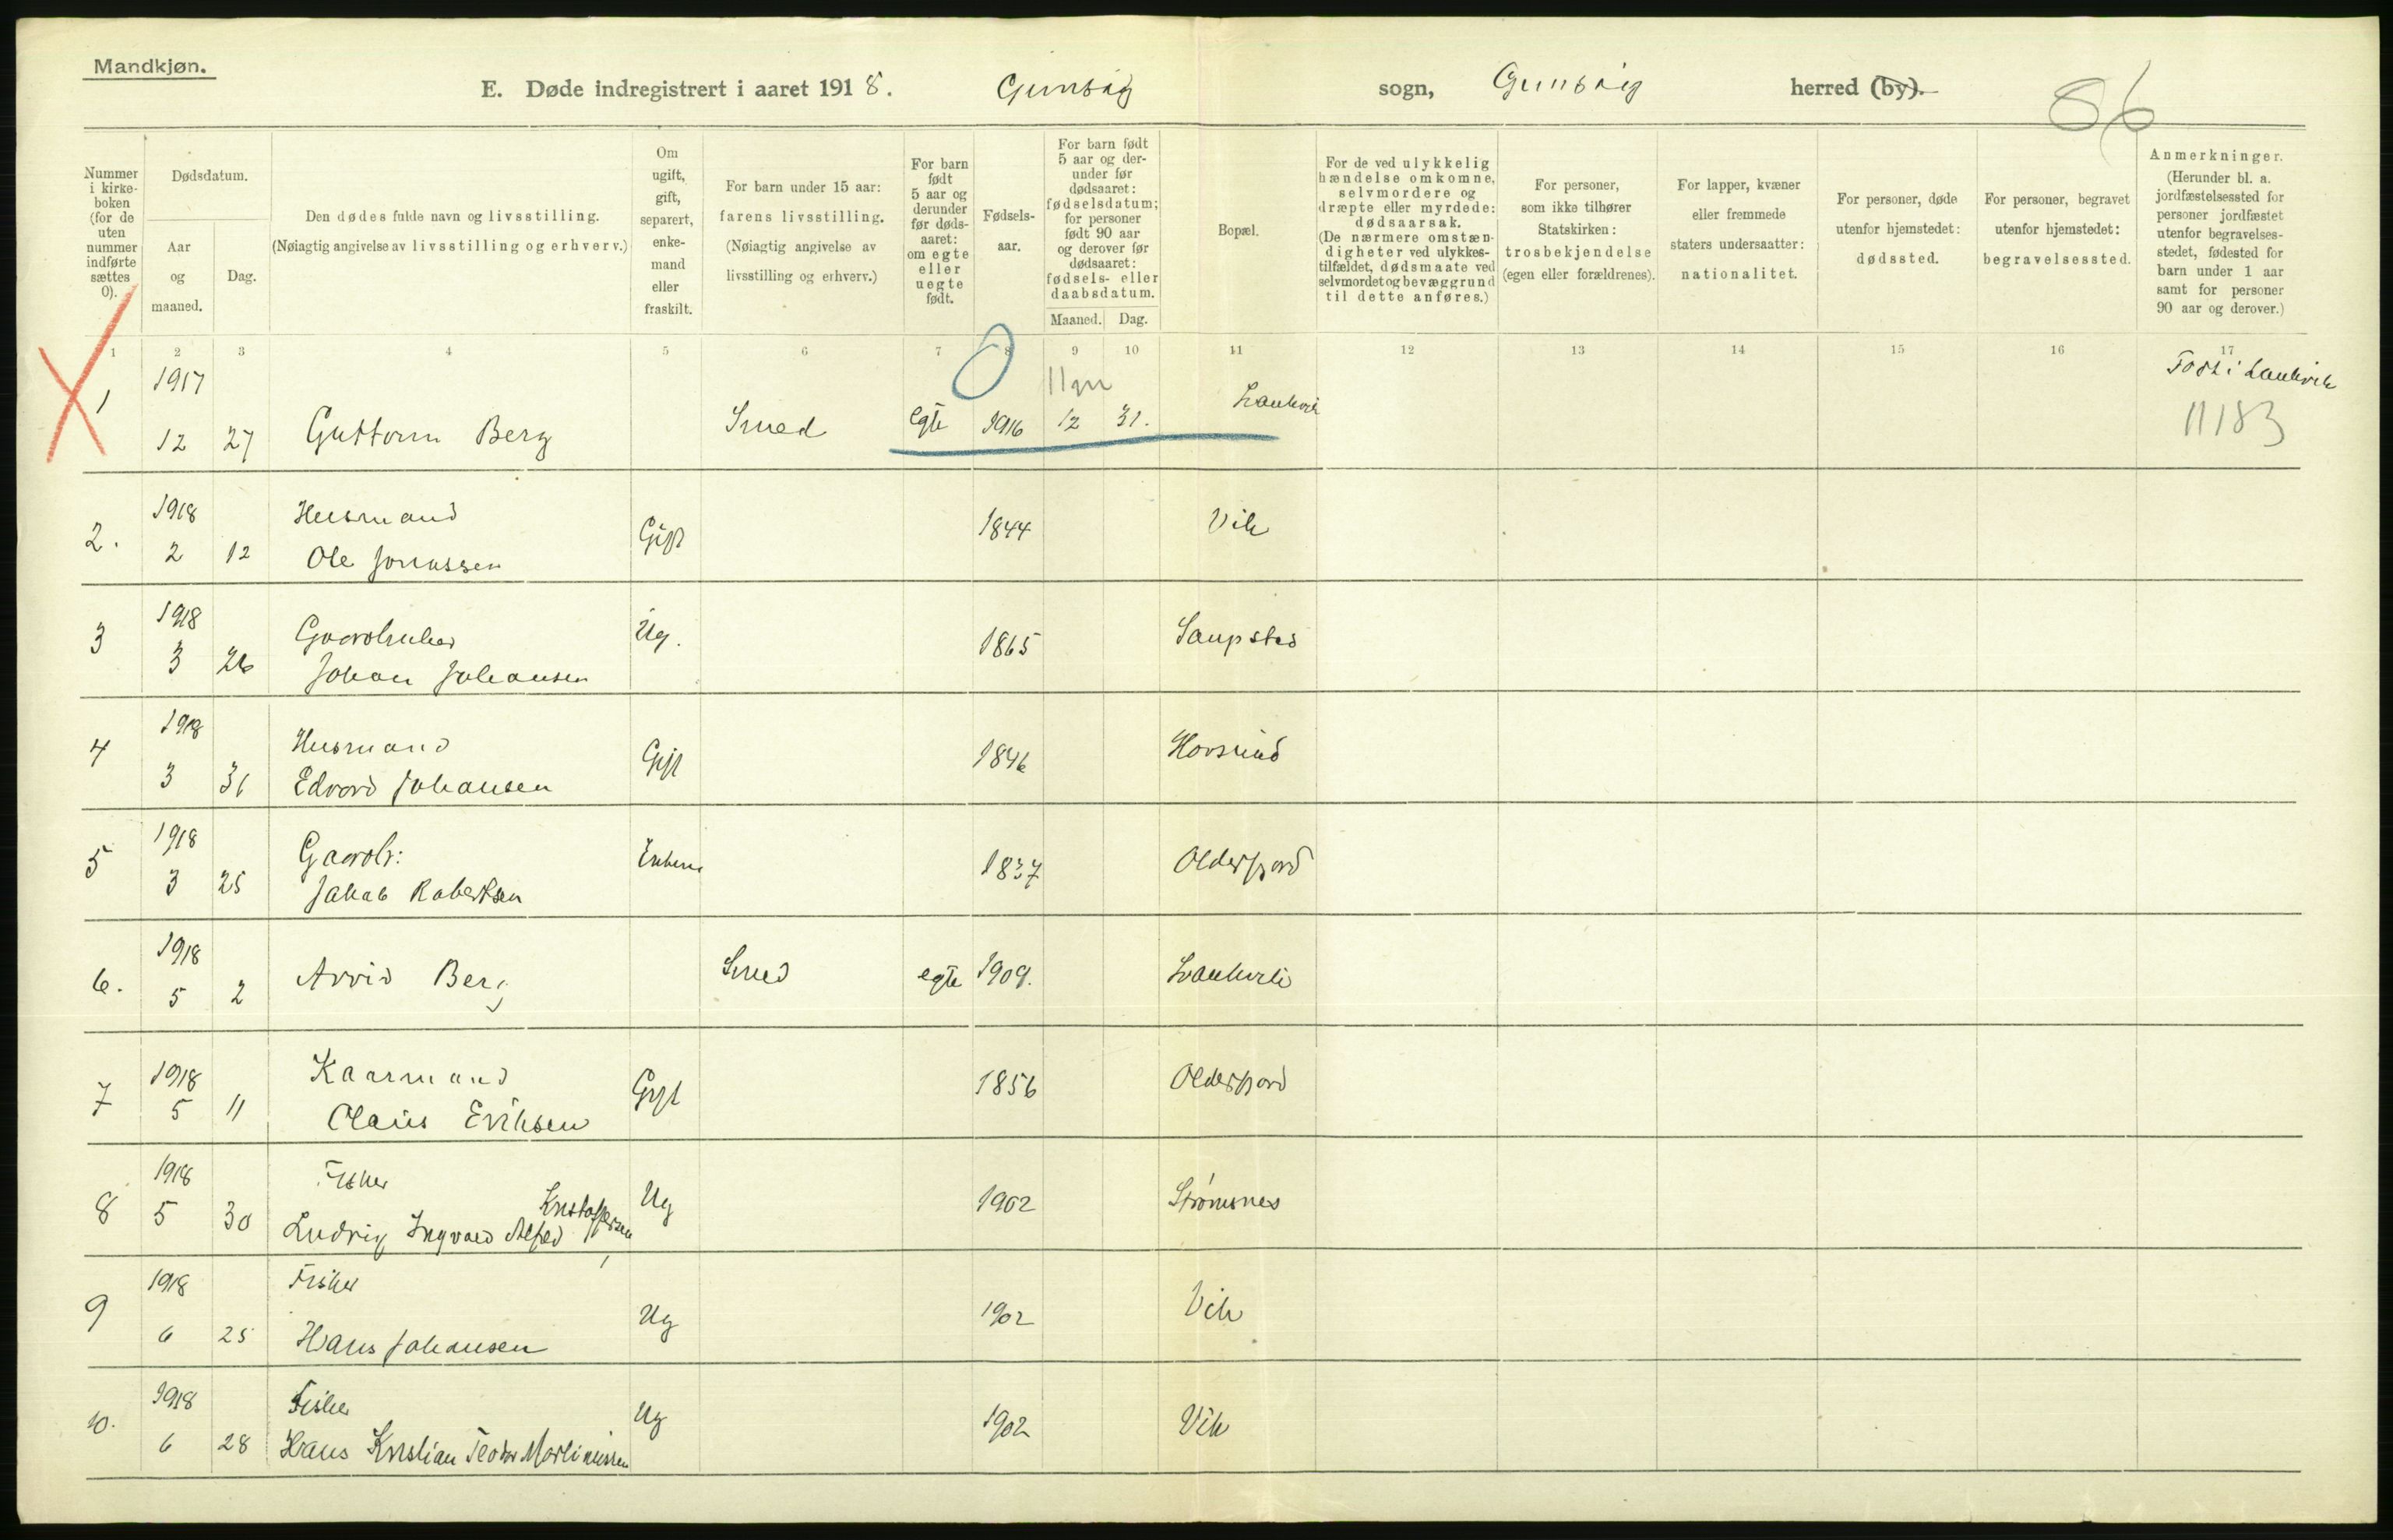 Mandkjøn.
E. Døde indregistrert i aaret 1918. Gimsøy sogn, Gimsøy herred (by).
86
Nummer i kirke-boken (for de uten nummer indførte sættes 0).
Dødsdatum.
Aar og maaned.
Dag.
Den dødes fulde navn og livsstilling.
(Nøiagtig angivelse av livsstilling og erhverv.)
Om ugift, gift, separert, enke-mand eller fraskilt.
For barn under 15 aar:
farens livsstilling.
(Nøiagtig angivelse av livsstilling og erhverv.)
For barn født 5 aar og derunder før døds-aaret: om egte eller uegte født.
Fødsels-aar.
For barn født 5 aar og der-under før dødsaaret: fødselsdatum; for personer født 90 aar og derover før dødsaaret: fødsels- eller daabsdatum.
Maaned. Dag.
Bopæl.
For de ved ulykkelig hændelse omkomne, selvmordere og dræpte eller myrdede: dødsaarsak.
(De nærmere omstæn-digheter ved ulykkes-tilfældet, dødsmaate ved selvmordet og bevæggrund til dette anføres.)
For personer, som ikke tilhører Statskirken: trosbekjendelse (egen eller forældrenes).
For lapper, kvæner eller fremmede staters undersaatter: nationalitet.
For personer, døde utenfor hjemstedet: dødssted.
For personer, begravet utenfor hjemstedet: begravelsessted.
Anmerkninger.
(Herunder bl. a. jordfæstelsessted for personer jordfæstet utenfor begravelses-stedet, fødested for barn under 1 aar samt for personer 90 aar og derover.)
1 2 3 4 5 6 7 8 9 10 11 12 13 14 15 16 17
1917 0 11 m Født i Laukvik
1 12 27 Guttorm Berg Smed egte 1916 12 31. Laukvik 11183
1918 Husmand
2. 2 12 Ole Jonassen Gift 1844 Vik
1918 Gaardbruker
3 3 26 Johan Johansen Ug. 1865 Saupstad
1918 Husmand
4 3 31 Edvard Johansen Gift 1846 Hovsund
1918 Gaardbr:
5 3 25 Jakob Robertsen Enkem 1837 Olderfjord
1918
6. 5 2 Arvid Berg Smed egte 1909. Laukvik
1918 Kaarmand
7 5 11 Olaus Eriksen Gift 1856 Olderfjord
1918 Fisker
8 5 30 Ludvig Ingvald Alfred Kristoffersen Ug 1902 Strømsnes
1918 Fisker
9 6 25 Hans Johansen Ug 1902 Vik
1918 Fisker
10. 6 28 Hans Kristian Teodor Martinussen Ug 1902 Vik